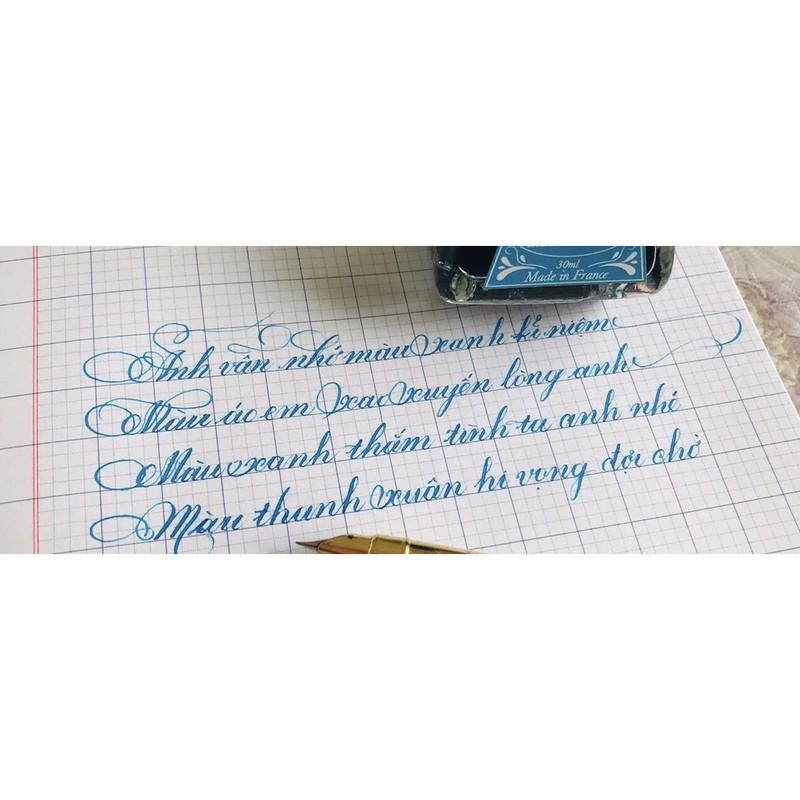 30ml
Made in France
Anh vẫn nhớ màu xanh kỉ niệm
Màu áo em xao xuyến lòng anh
Màu xanh thắm tình ta anh nhé
Màu thanh xuân hi vọng đợi chờ